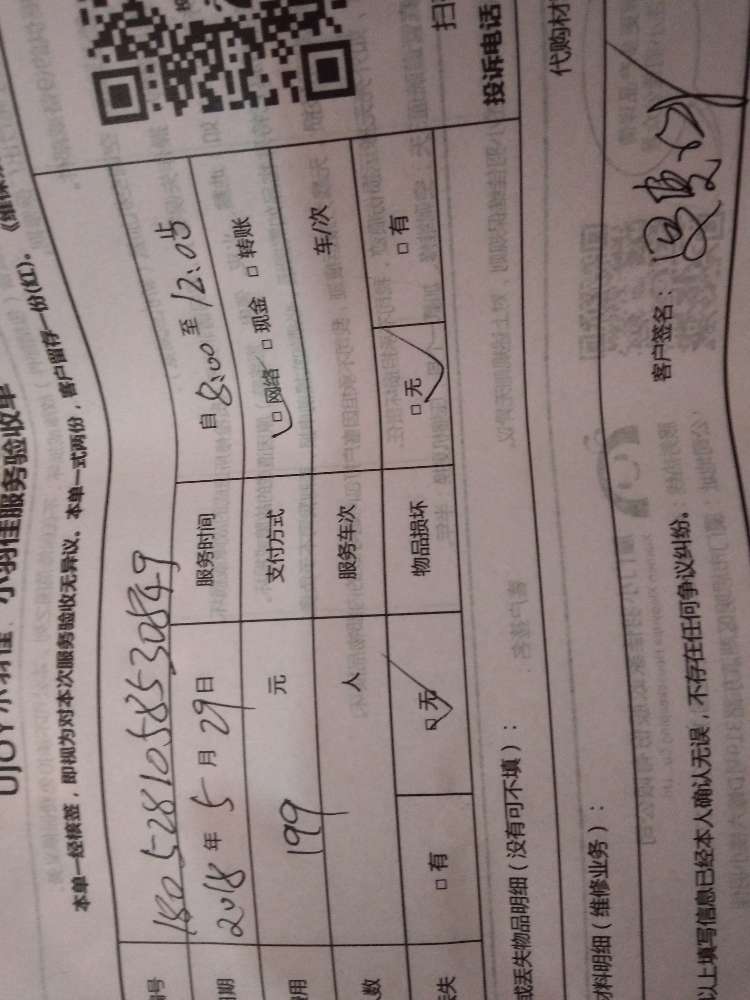 UJOY小羽佳 小羽佳服务验收单
本单一经核签，即视为对本次服务验收无异议。本单一式两份，客户留存一份(红)。《维保
号 180528105853084 9
期 2018年5月29日 服务时间 自8:00至12:05
用 199 元 支付方式 □网络 □现金 □转账
数 人 服务车次 车/次
失 □有 □无 物品损坏 □无 □有
或丢失物品明细（没有可不填）：
投诉电话
扫
材料明细（维修业务）：
代购材
以上填写信息已经本人确认无误，不存在任何争议纠纷。 客户签名：